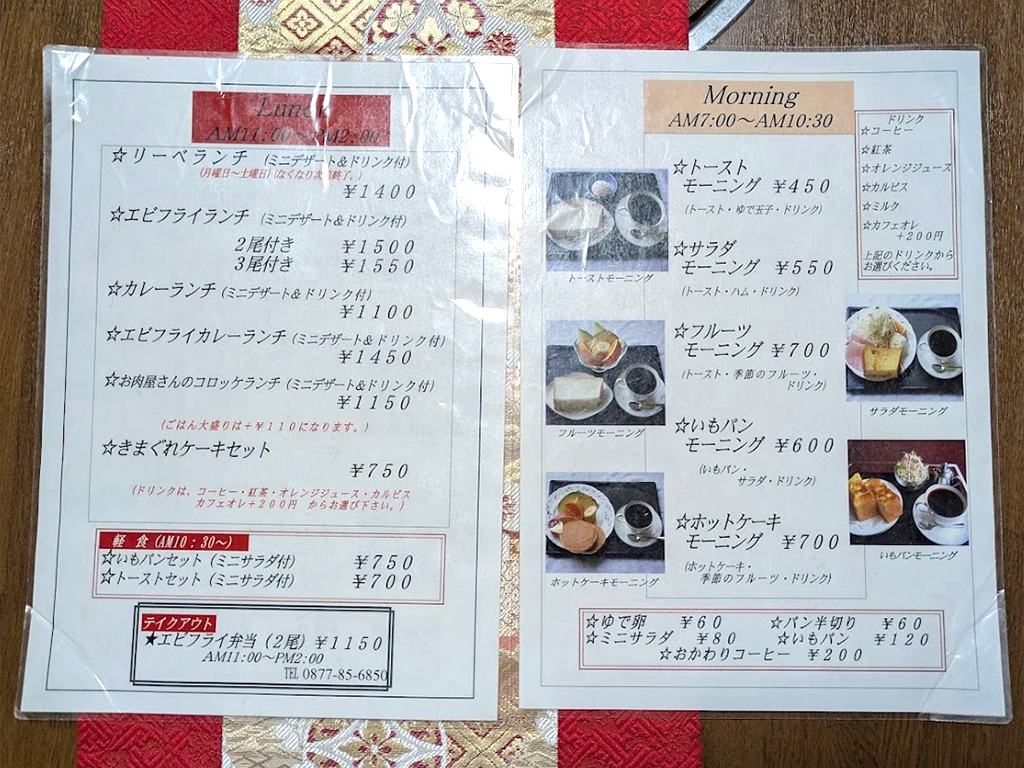 Lunch
AM11:00～PM2:00
☆リーベランチ (ミニデザート&ドリンク付)
(月曜日～土曜日)(なくなり次第終了。)
￥1400
☆エビフライランチ (ミニデザート&ドリンク付)
2尾付き ￥1500
3尾付き ￥1550
☆カレーランチ (ミニデザート&ドリンク付)
￥1100
☆エビフライカレーランチ (ミニデザート&ドリンク付)
￥1450
☆お肉屋さんのコロッケランチ (ミニデザート&ドリンク付)
￥1150
(ごはん大盛りは+￥110になります。)
☆きまぐれケーキセット
￥750
(ドリンクは、コーヒー・紅茶・オレンジジュース・カルピス
カフェオレ+200円 からお選び下さい。)
軽 食 (AM10:30～)
☆いもパンセット (ミニサラダ付) ￥750
☆トーストセット (ミニサラダ付) ￥700
テイクアウト
★エビフライ弁当 (2尾) ￥1150
AM11:00～PM2:00
TEL 0877-85-6850
Morning
AM7:00～AM10:30
☆トースト
モーニング ￥450
(トースト・ゆで玉子・ドリンク)
トーストモーニング
☆サラダ
モーニング ￥550
(トースト・ハム・ドリンク)
サラダモーニング
☆フルーツ
モーニング ￥700
(トースト・季節のフルーツ・
ドリンク)
フルーツモーニング
☆いもパン
モーニング ￥600
(いもパン・
サラダ・ドリンク)
いもパンモーニング
☆ホットケーキ
モーニング ￥700
(ホットケーキ・
季節のフルーツ・ドリンク)
ホットケーキモーニング
ドリンク
☆コーヒー
☆紅茶
☆オレンジジュース
☆カルピス
☆ミルク
☆カフェオレ
+200円
上記のドリンクから
お選びください。
☆ゆで卵 ￥60 ☆パン半切り ￥60
☆ミニサラダ ￥80 ☆いもパン ￥120
☆おかわりコーヒー ￥200